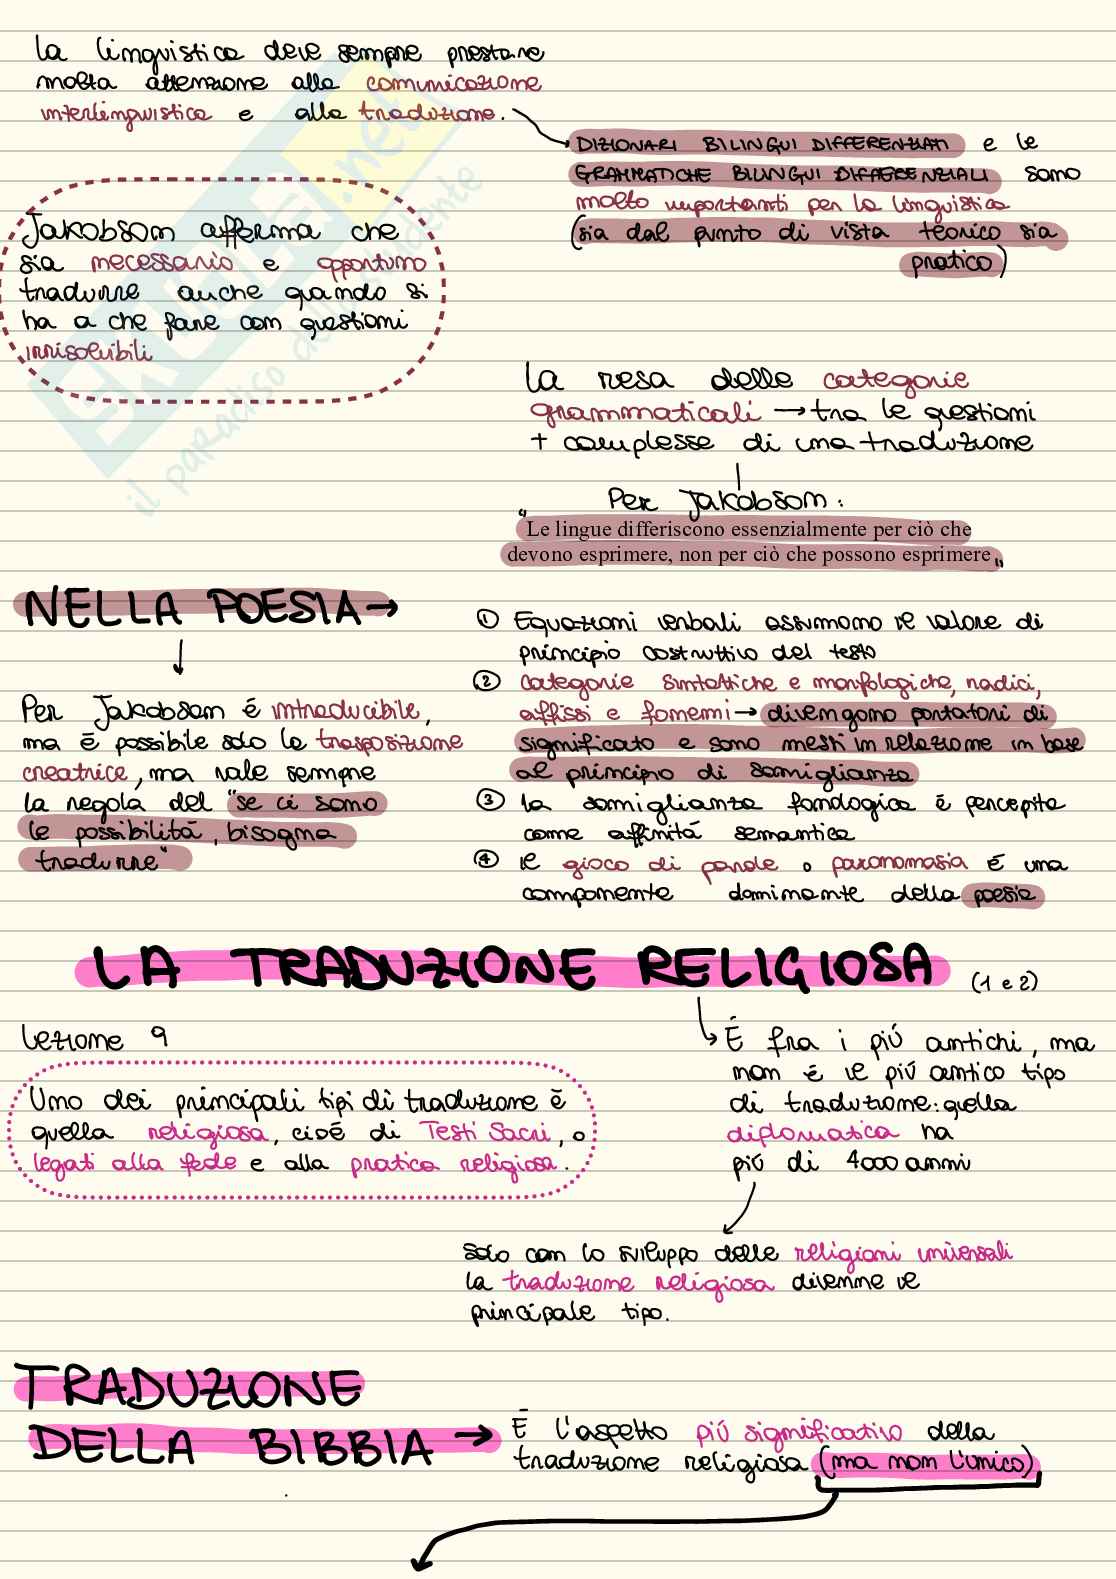 La linguistica deve sempre prestare
molta attenzione alla comunicazione
interlinguistica e alla traduzione.
DIZIONARI BILINGUI DIFFERENZIATI e le
GRAMMATICHE BILINGUI DIFFERENZIALI sono
molto importanti per la linguistica
(sia dal punto di vista teorico sia
pratico)
Jakobson afferma che
sia necessario e opportuno
tradurre anche quando si
ha a che fare con questioni
irrisolvibili
La resa delle categorie
grammaticali → tra le questioni
+ complesse di una traduzione
Per Jakobson:
"Le lingue differiscono essenzialmente per ciò che
devono esprimere, non per ciò che possono esprimere"
NELLA POESIA →
Per Jakobson è intraducibile,
ma è possibile solo la trasposizione
creatrice, ma vale sempre
la regola del "se ci sono
le possibilità, bisogna
tradurre"
① Equazioni verbali assumono il valore di
principio costruttivo del testo
② categorie sintattiche e morfologiche, radici,
affissi e fonemi → divengono portatori di
significato e sono messi in relazione in base
al principio di somiglianza
③ La somiglianza fonologica è percepita
come affinità semantica
④ il gioco di parole o paronomasia è una
componente dominante della poesia
LA TRADUZIONE RELIGIOSA (1 e 2)
Lezione 9
Uno dei principali tipi di traduzione è
quella religiosa, cioè di Testi Sacri, o
legati alla fede e alla pratica religiosa.
È fra i più antichi, ma
non è il più antico tipo
di traduzione: quella
diplomatica ha
più di 4000 anni
Solo con lo sviluppo delle religioni universali
la traduzione religiosa divenne il
principale tipo.
TRADUZIONE
DELLA BIBBIA →
È l'aspetto più significativo della
traduzione religiosa (ma non l'unico)
Skuola.net
il paradiso dello studente